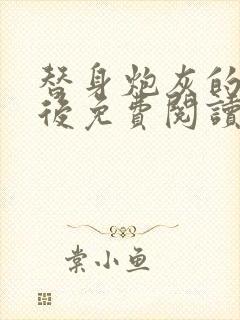 替身炮灰的
後免費閱讀
棠小鱼